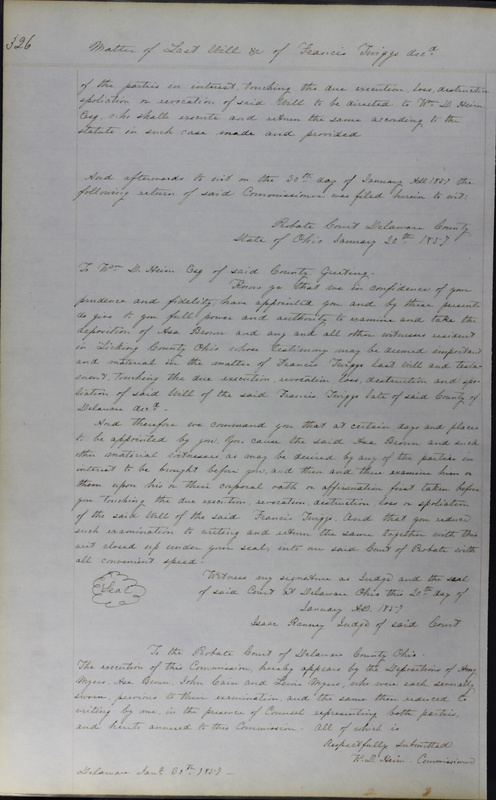 326
Matter of Last Will &c of Francis Twiggs decd.
of the parties in interest, touching the due execution, loss, destruction
spoliation or revocation of said Will to be directed to Wm D. Heim
Esq. who shall execute and return the same according to the
statute in such case made and provided
And afterwards to wit on the 30th day of January AD. 1857 the
following return of said Commissioner was filed herein to wit:
Probate Court Delaware County
State of Ohio January 20th 1857
To Wm D. Heim Esq of said County Greeting.
Know ye that we in confidence of your
prudence and fidelity, have appointed you and by these presents
do give to you full power and authority to examine and take the
deposition of Asa Brown and any and all other witnesses resident
in Licking County Ohio whose testimony may be deemed important
and material in the matter of Francis Twiggs last will and testa-
ment, touching the due execution, revocation, loss, destruction and spo-
liation of said Will of the said Francis Twiggs late of said County of
Delaware decd.
And therefore we command you that at certain days and places
to be appointed by you, you cause the said Asa Brown and such
other material witnesses as may be desired by any of the parties in
interest to be brought before you, and then and there examine him or
them upon his or their corporal oath or affirmation first taken before
you touching the due execution, revocation, destruction loss or spoliation
of the said Will of the said Francis Twiggs. And that you reduce
such examination to writing and return the same together with this
writ closed up under your seal, into our said Court of Probate with
all convenient speed.
Witness my signature as Judge and the seal
Seal
of said Court at Delaware Ohio this 20th day of
January AD. 1857
Isaac Ranney Judge of said Court
To the Probate Court of Delaware County Ohio.
The execution of this Commission, hereby appears by the Depositions of
Myers, Asa Brown, John Cain and Lewis Myers, who were each severally
sworn, previous to their examination, and the same then reduced to
writing by me, in the presence of Counsel representing both parties,
and hereto annexed to this Commission. All of which is
Respectfully Submitted
W. D. Heim Commissioner
Delaware Jany 30th 1857 —